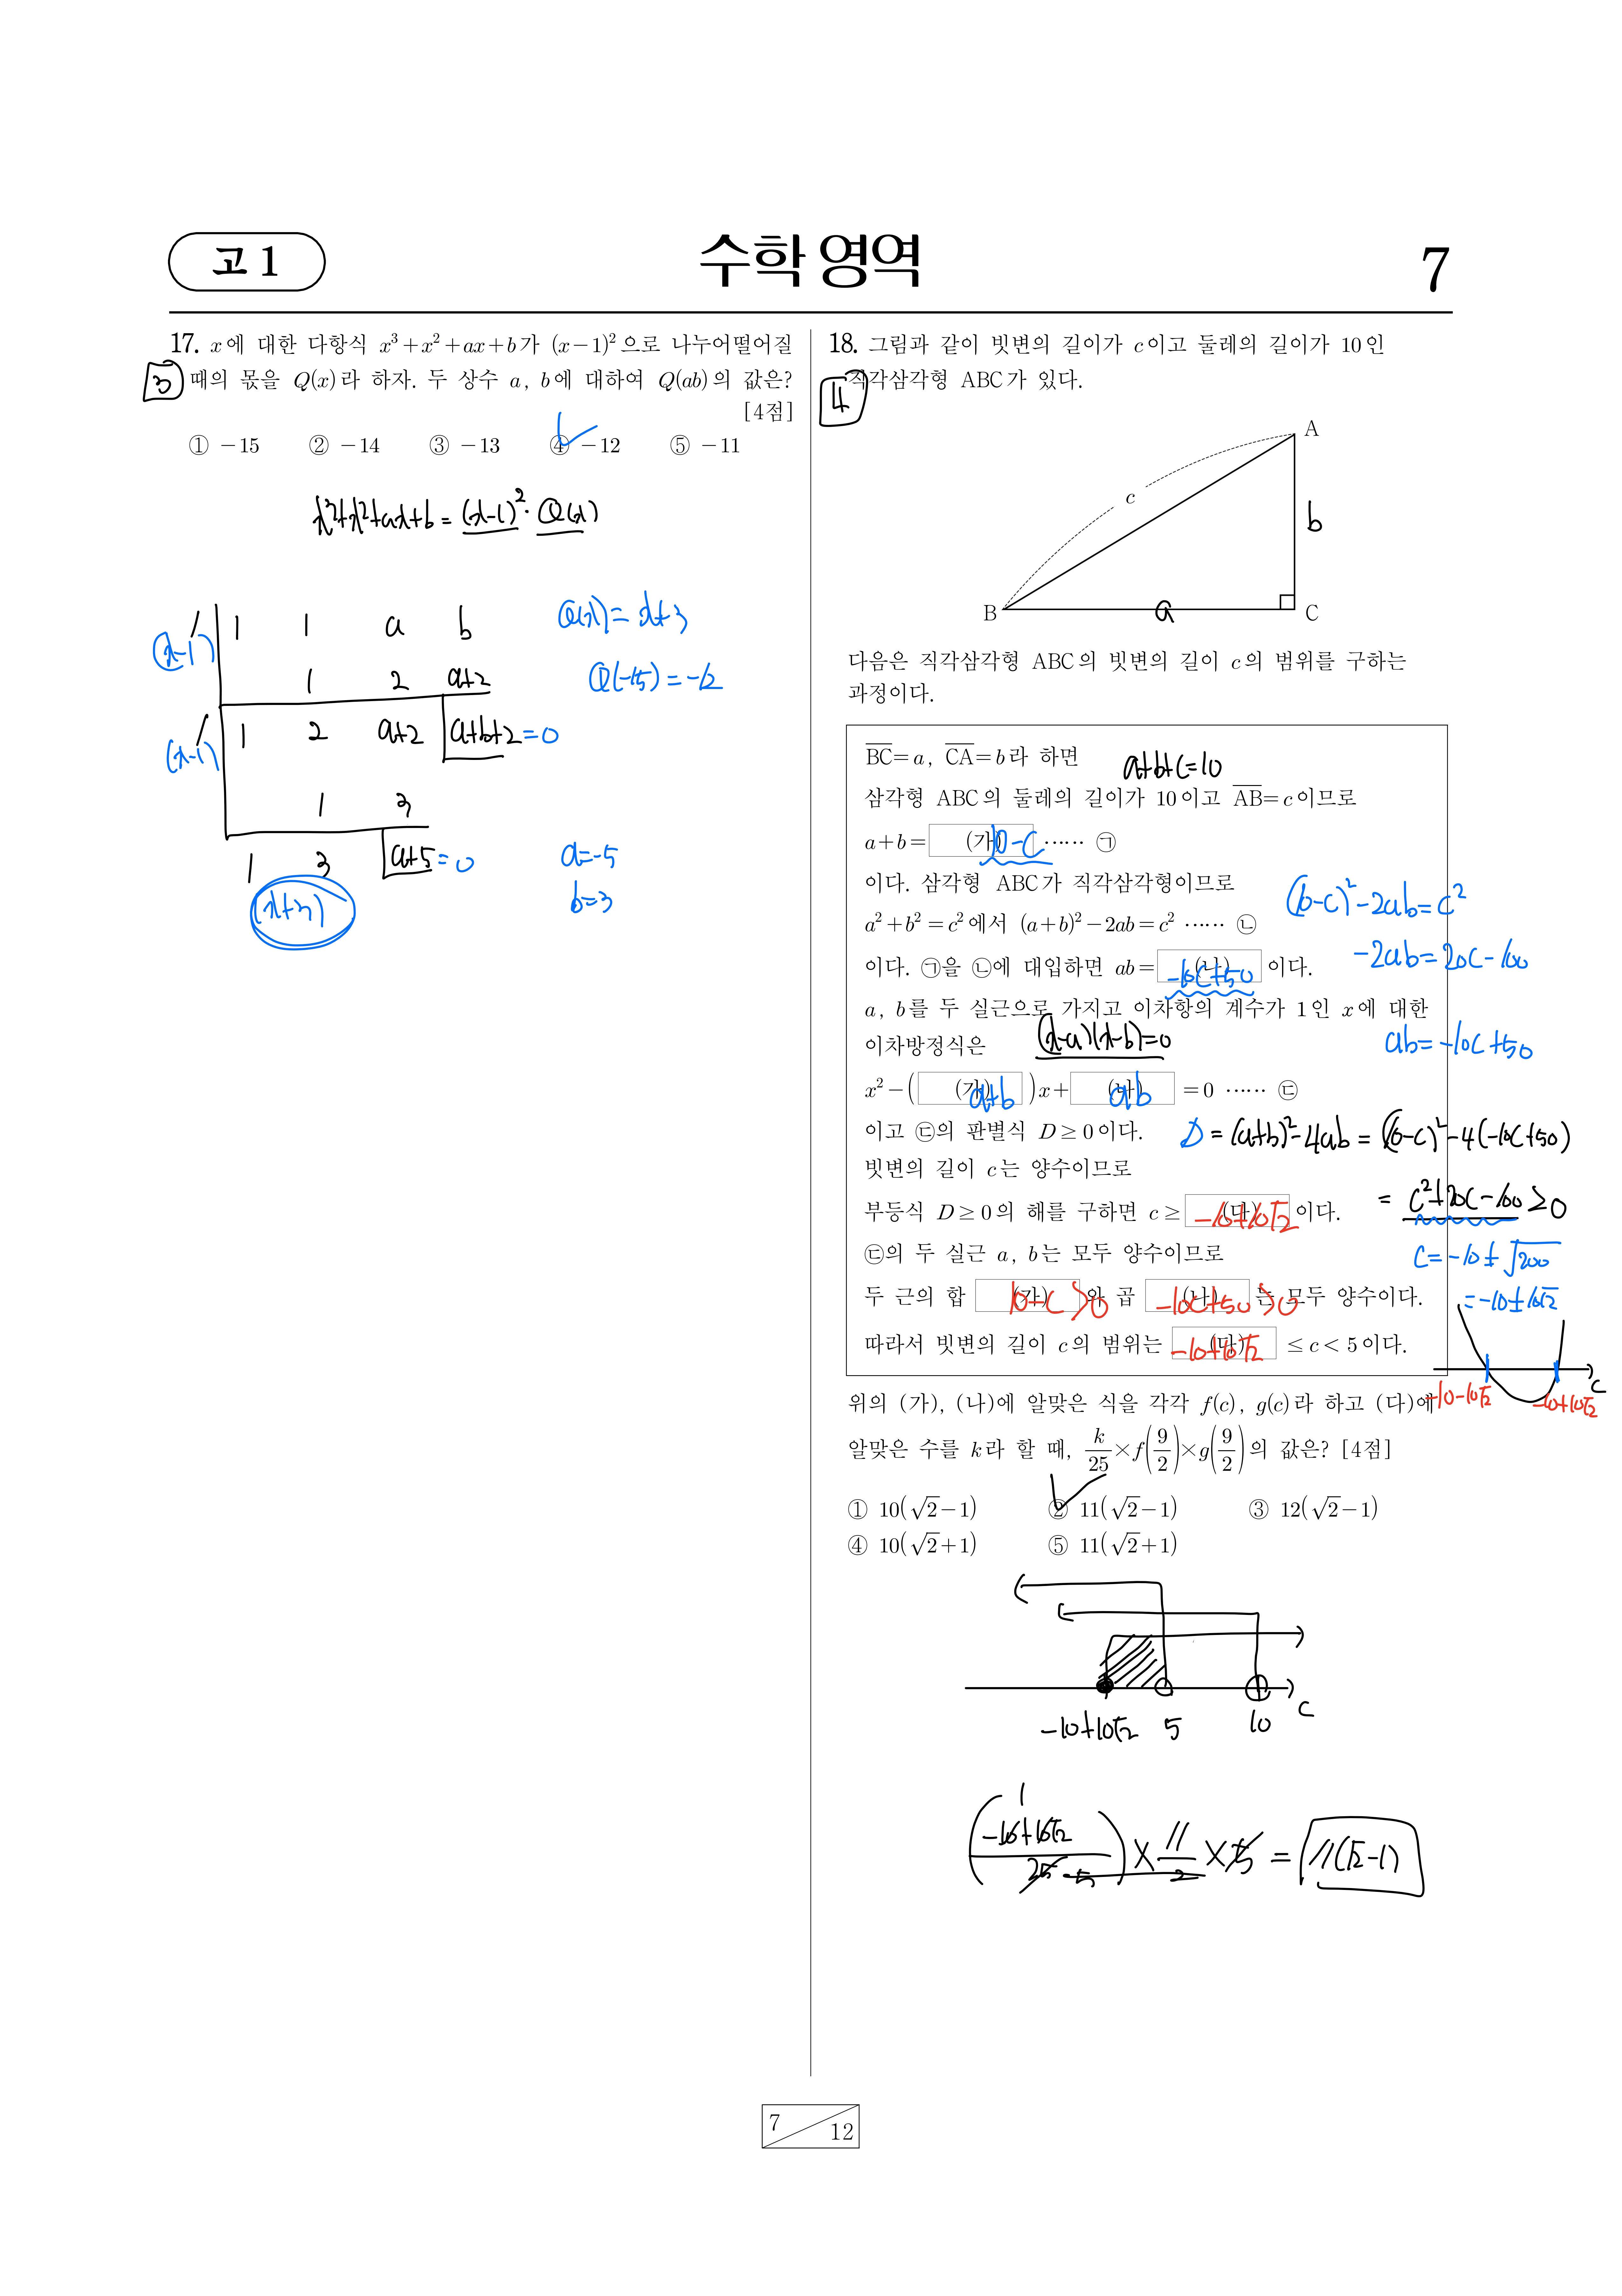 고 1
수학 영역
7
17. x에 대한 다항식 x³+x²+ax+b가 (x-1)²으로 나누어떨어질
3
때의 몫을 Q(x)라 하자. 두 상수 a, b에 대하여 Q(ab)의 값은?
[4점]
① -15 ② -14 ③ -13 ④ -12 ⑤ -11
x³+x²+ax+b = (x-1)²·Q(x)
(x-1) 1 | 1 1 a b
1 2 a+2
(x-1) 1 | 1 2 a+2 a+b+2=0
1 3
1 3 a+5=0
(x+3)
Q(x)= x+3
Q(-15)=-12
a=-5
b=3
18. 그림과 같이 빗변의 길이가 c이고 둘레의 길이가 10인
4
직각삼각형 ABC가 있다.
A
c
b
B
a
C
다음은 직각삼각형 ABC의 빗변의 길이 c의 범위를 구하는
과정이다.
BC=a, CA=b라 하면
a+b+c=10
삼각형 ABC의 둘레의 길이가 10이고 AB=c이므로
a+b= (가) 10-c ⋯⋯ ㉠
이다. 삼각형 ABC가 직각삼각형이므로
(10-c)²-2ab=c²
a²+b²=c²에서 (a+b)²-2ab=c² ⋯⋯ ㉡
-2ab=20c-100
이다. ㉠을 ㉡에 대입하면 ab= (나) -10c+50 이다.
a, b를 두 실근으로 가지고 이차항의 계수가 1인 x에 대한
ab=-10c+50
이차방정식은
(x-a)(x-b)=0
x²-( (가) a+b )x+ (나) ab =0 ⋯⋯ ㉢
이고 ㉢의 판별식 D≥0이다.
D = (a+b)²-4ab = (10-c)²-4(-10c+50)
빗변의 길이 c는 양수이므로
= c²+20c-100≥0
부등식 D≥0의 해를 구하면 c≥ (다) -10+10√2 이다.
c=-10±√200
㉢의 두 실근 a, b는 모두 양수이므로
=-10±10√2
두 근의 합 (가) 10-c>0 와 곱 (나) -10c+50>0 는 모두 양수이다.
따라서 빗변의 길이 c의 범위는 (다) -10+10√2 ≤c<5이다.
c
-10-10√2 -10+10√2
위의 (가), (나)에 알맞은 식을 각각 f(c), g(c)라 하고 (다)에
알맞은 수를 k라 할 때, k/25×f(9/2)×g(9/2)의 값은? [4점]
① 10(√2-1) ② 11(√2-1) ③ 12(√2-1)
④ 10(√2+1) ⑤ 11(√2+1)
-10+10√2 5 10 c
1
(-10+10√2 / 25 5) × 11/2 × 5 = 11(√2-1)
7
12